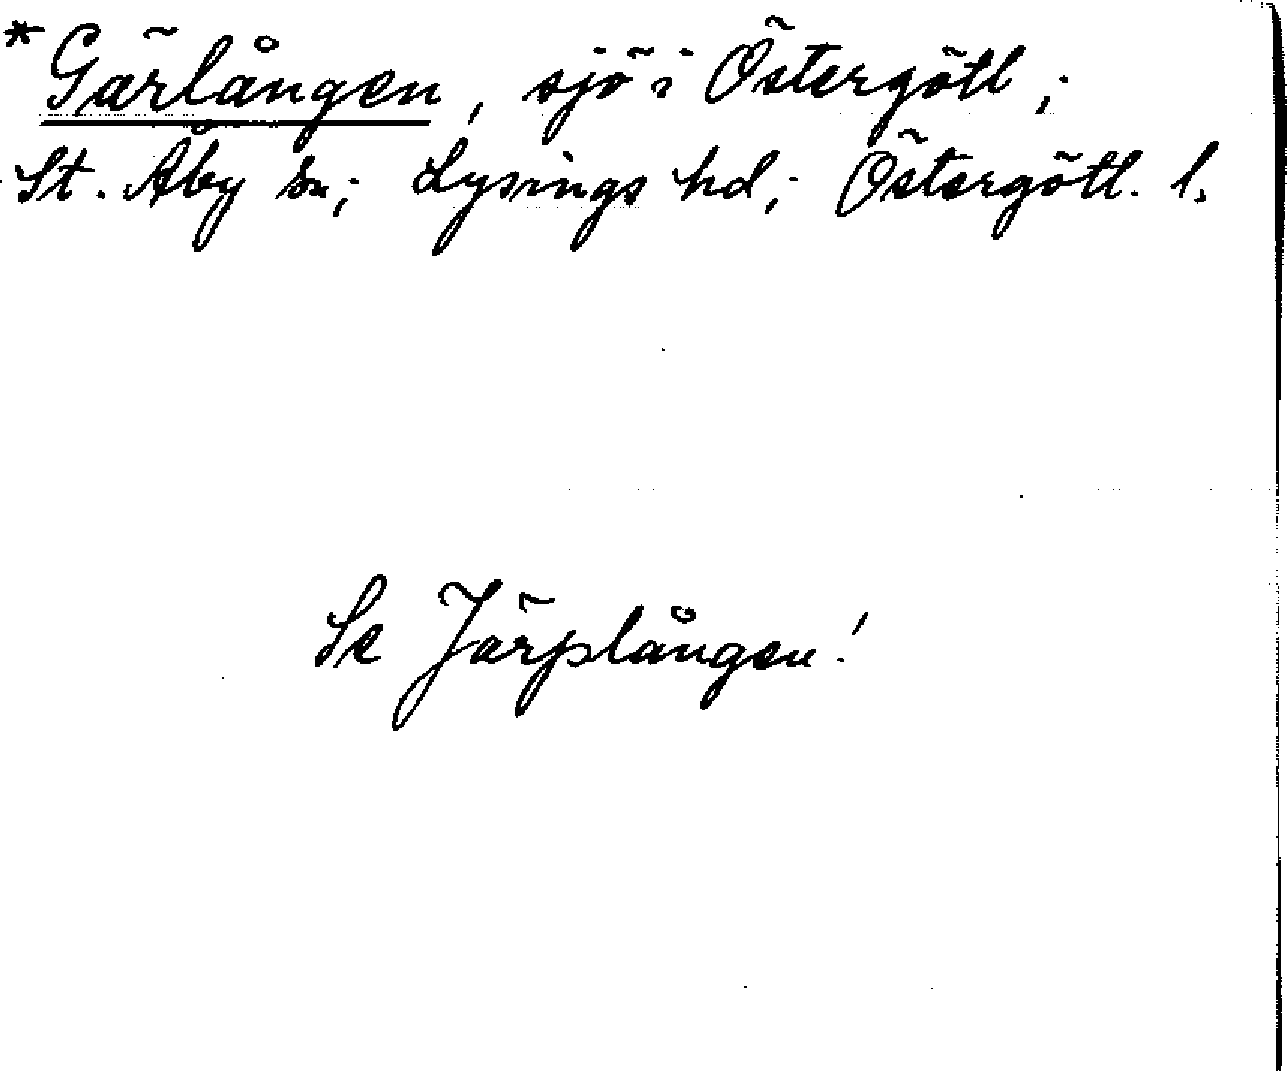 * Gärlången, sjö i Östergötl;
St. Åby sn; Lysings hd; Östergötl. l.
Se Järplången!